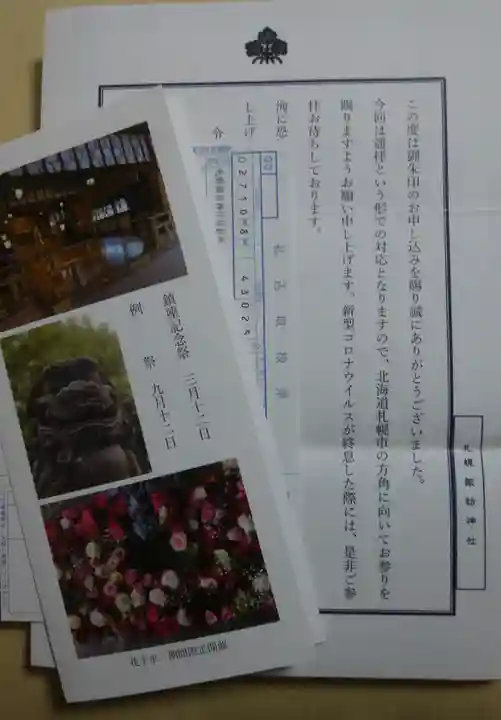 この度は御朱印のお申し込みを賜り誠にありがとうございました。
今回は遥拝という形での対応となりますので、北海道札幌市の方角に向いてお参りを
賜りますようお願い申し上げます。新型コロナウイルスが終息した際には、是非ご参
拝お待ちしております。
誠に恐
し上げ
令
札幌諏訪神社
払込取扱票
02710
8
43025
鎮座記念祭 三月十二日
例祭 九月十二日
花手水 期間限定開催